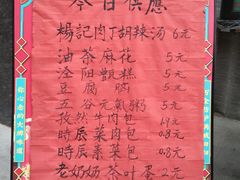 今日供應
楊記肉丁胡辣汤 6元
油茶麻花 5元
泾阳甑糕 5元
豆腐脑 5元
五谷元氣粥 5元
孜然牛肉包 14元
时辰菜肉包 0.8元
时辰素菜包 0.8元
老奶奶茶叶蛋 2元
你心念的
大牌味道